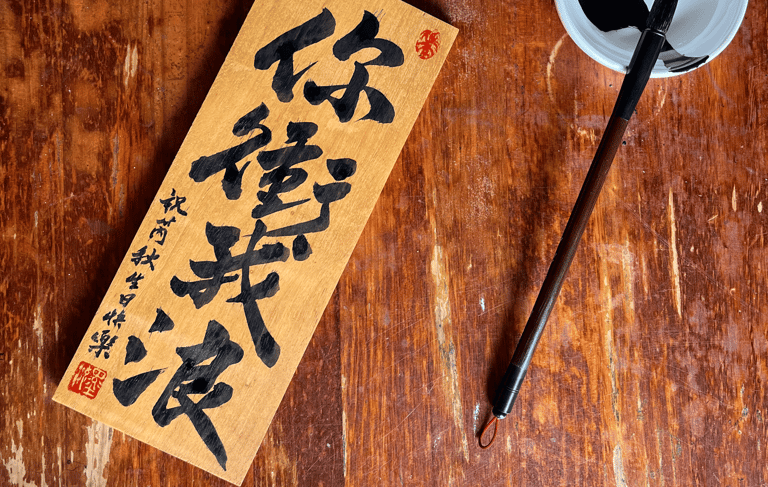 你衝我浪
祝芮秋生日快樂